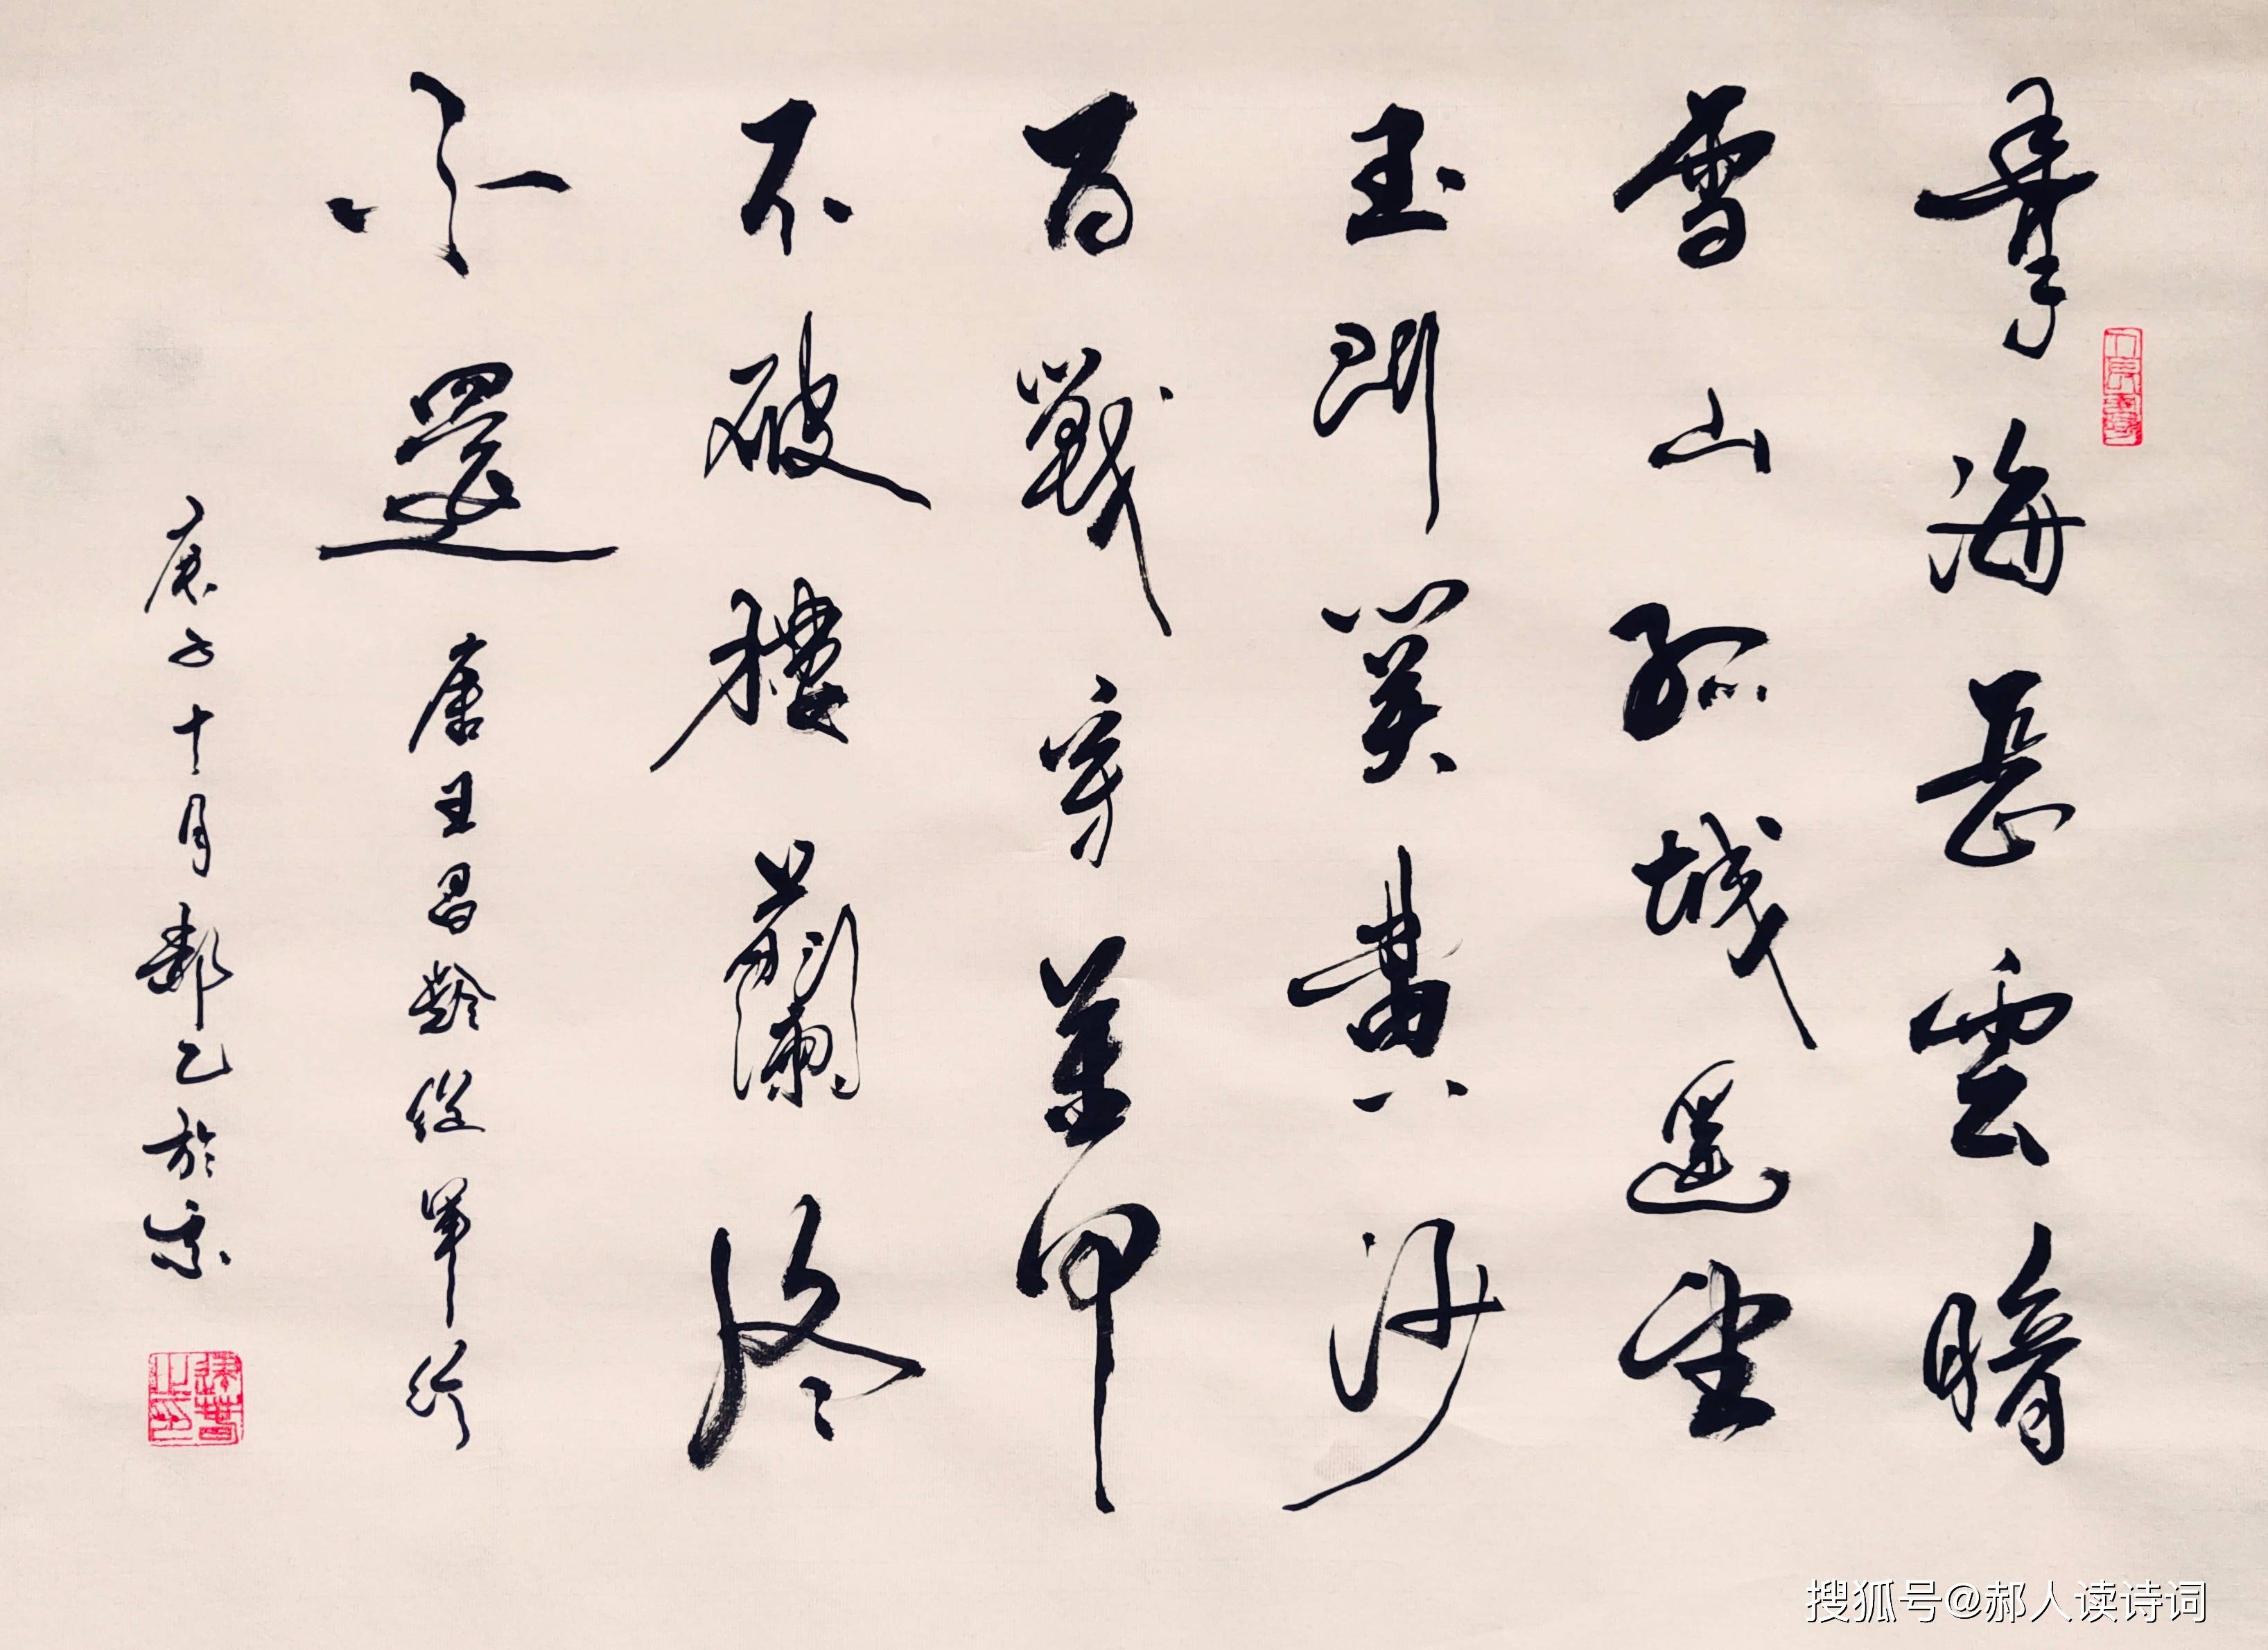 青海長雲暗
雪山孤城遥望
玉門关黄沙
百戰穿金甲
不破樓蘭終
不還 唐王昌齡從軍行
庚子十月郝乙於京
搜狐号@郝人读诗词